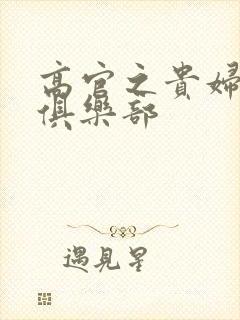 高官之貴婦
俱樂部
遇見星